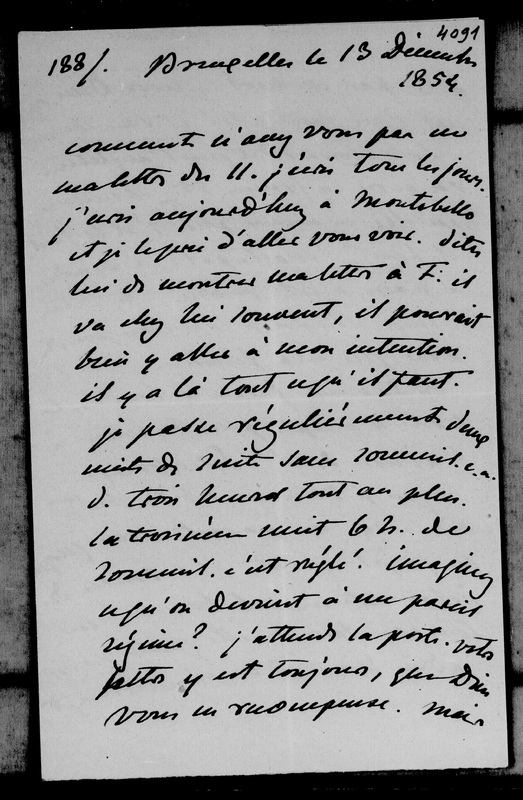 4091
188/. Bruxelles le 13 Décembre
1854.
comment n'avez vous pas eu
ma lettre du 11. j'écris tous les jours.
j'écris aujourd'huy à Montebello
et je le prie d'aller vous voir. dites
lui de montrer ma lettre à F: il
va chez lui souvent, il pourrait
bien y aller à mon intention.
il y a là tout ce qu'il faut.
je passe régulièrement deux
nuits de suite sans sommeil. c.a.
d. trois heures tout au plus.
la troisième nuit 6 h. de
sommeil. c'est réglé. imaginez
ce qu'on devient à un pareil
régime? j'attends la poste. votre
lettre y est toujours, que Dieu
vous en récompense. mais